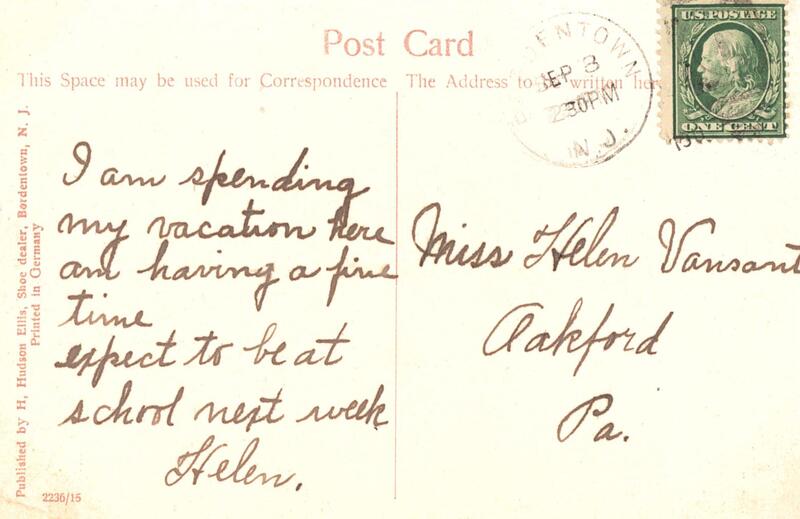 Post Card
This Space may be used for Correspondence
The Address to be written
BORDENTOWN
SEP 3
230PM
N.J.
U.S. POSTAGE
ONE CENT
I am spending
my vacation here
am having a fine
time
expect to be at
school next week
Helen.
Miss Helen Vansant
Oakford
Pa.
Published by H, Hudson Ellis, Shoe dealer, Bordentown, N. J.
Printed in Germany
2236/15